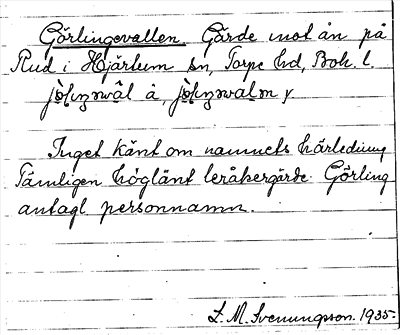 Görlingevallen. Gärde mot ån på
Rud i Hjärtum sn, Torpe hd, Boh. l.
å, y.
Inget känt om namnets härledning
Tämligen höglänt leråkergärde. Görling
antagl. personnamn.
L. M. Svenungsson. 1935.